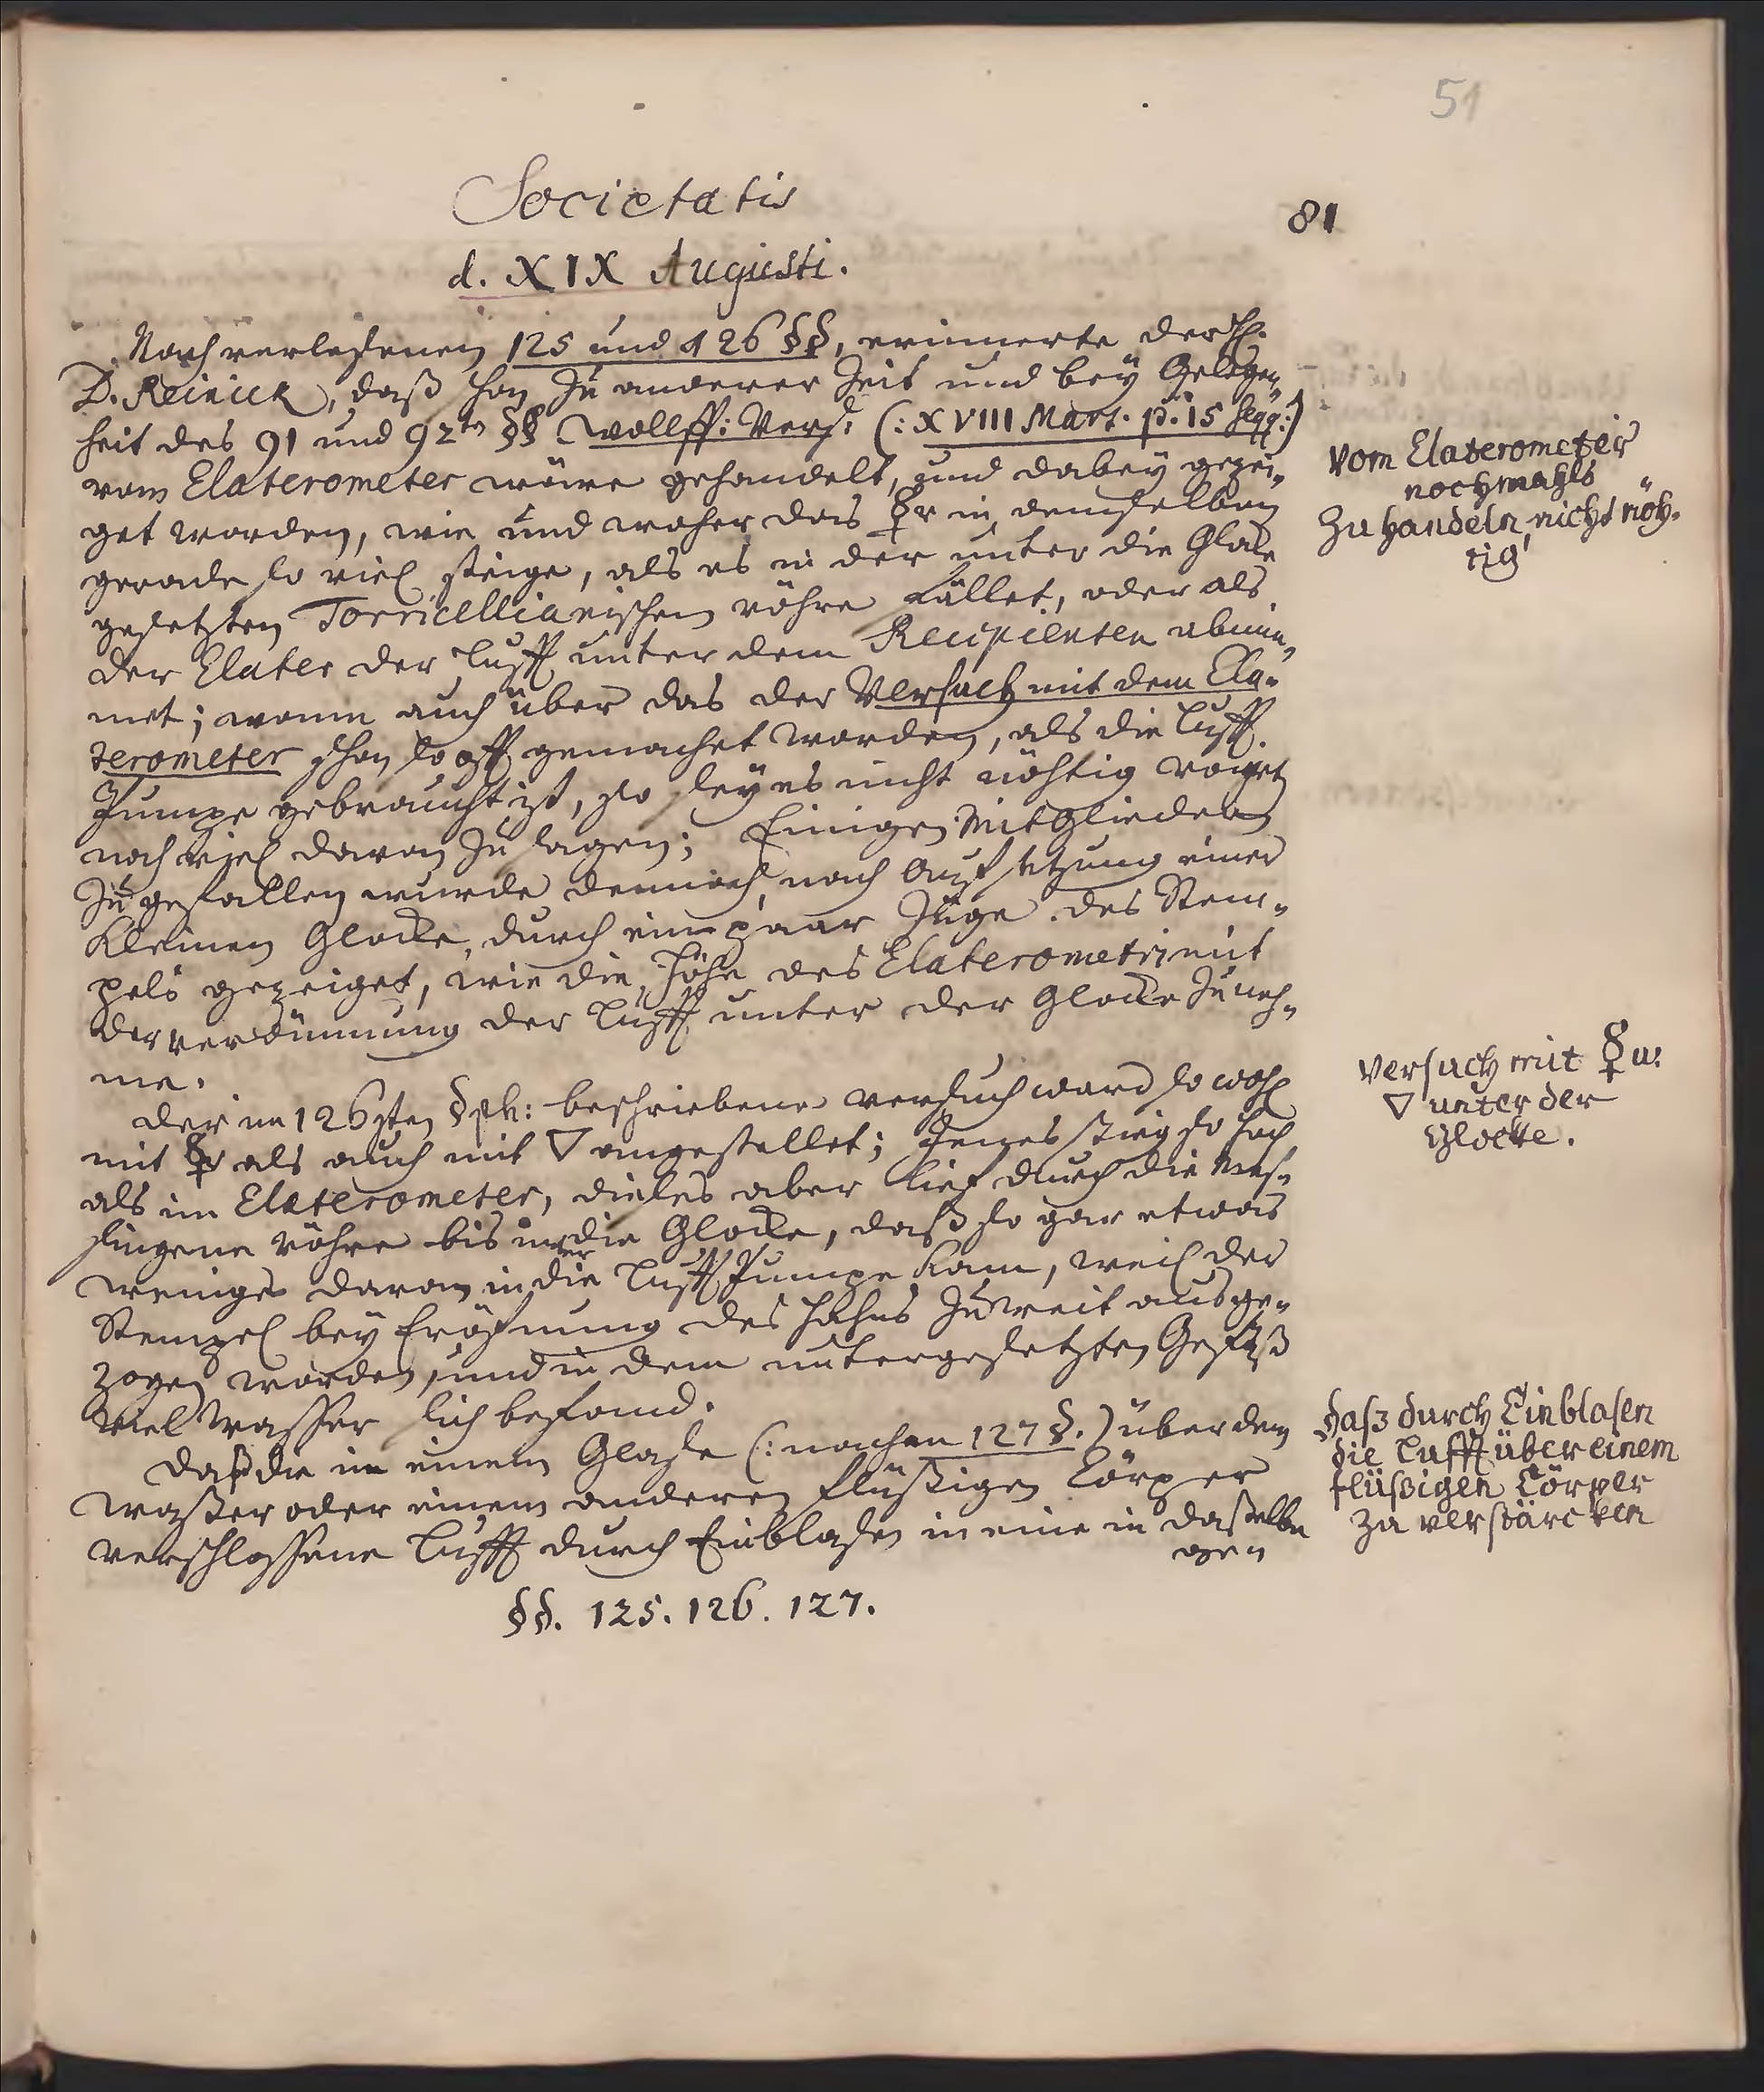 51
Societatis
81
d. XIX Augusti.
Nach verlesenen 125 und 126 §§, erinnerte der H.
D. Reinick, daß schon zu anderer Zeit und bey Gelegen„
heit des 91 und 92ten §§ Wolff: Vers: (: XVIII Mart. p. 15 seqq:)
vom Elaterometer wäre gehandelt, und dabey gezei„
get worden, wie und woher das ☿r in demselben
gerade so viel steige, als es in der unter die Glocke
gesetzten Torricellianischen röhre fället, oder als
der Elater der Lufft unter dem Recipienten abnim„
met; wann auch über das der Versuch mit dem Ela„
terometer schon so oft gemachet worden, als die Lufft
Pumpe gebraucht ist, so sey es nicht nöhtig
noch viel davon zu sagen; Einigen Mitgliedern
zu gefallen wurde dennoch, nach Aufsetzung einer
kleinen Glocke, durch ein paar Züge des Stem„
pels gezeiget, wie die Höhe des Elaterometri mit
der verdünnung der Lufft unter der Glocke zuneh„
me.
Der im 126sten § ph: beschriebene versuch ward so wohl
mit ☿ als auch mit ▽ angestellet; Jenes stieg so hoch
als im Elaterometer, dieses aber lief durch die mes„
singene röhre bis in die Glocke, daß so gar etwas
weniges davon in die Lufft Pumpe kam, weil der
Stempel bey Eröfnung des Hahns zu weit ausge„
zogen worden, und in dem untergesetzten Gefäß
viel Wasser sich befand.
Daß die in einem Glase (: nach 127 §.) über dem
Waßer oder einem anderen flüßigen Cörper
verschlossene Lufft durch Einblasen in eine in daßelbe
gen
§§. 125. 126. 127.
Vom Elaterometer
nochmahls
zu handeln, nicht nöh„
tig
Versuch mit ☿ u:
▽ unter der
Glocke.
Daß durch Einblasen
die Lufft über einem
flüßigen Cörper
zu verstärcken